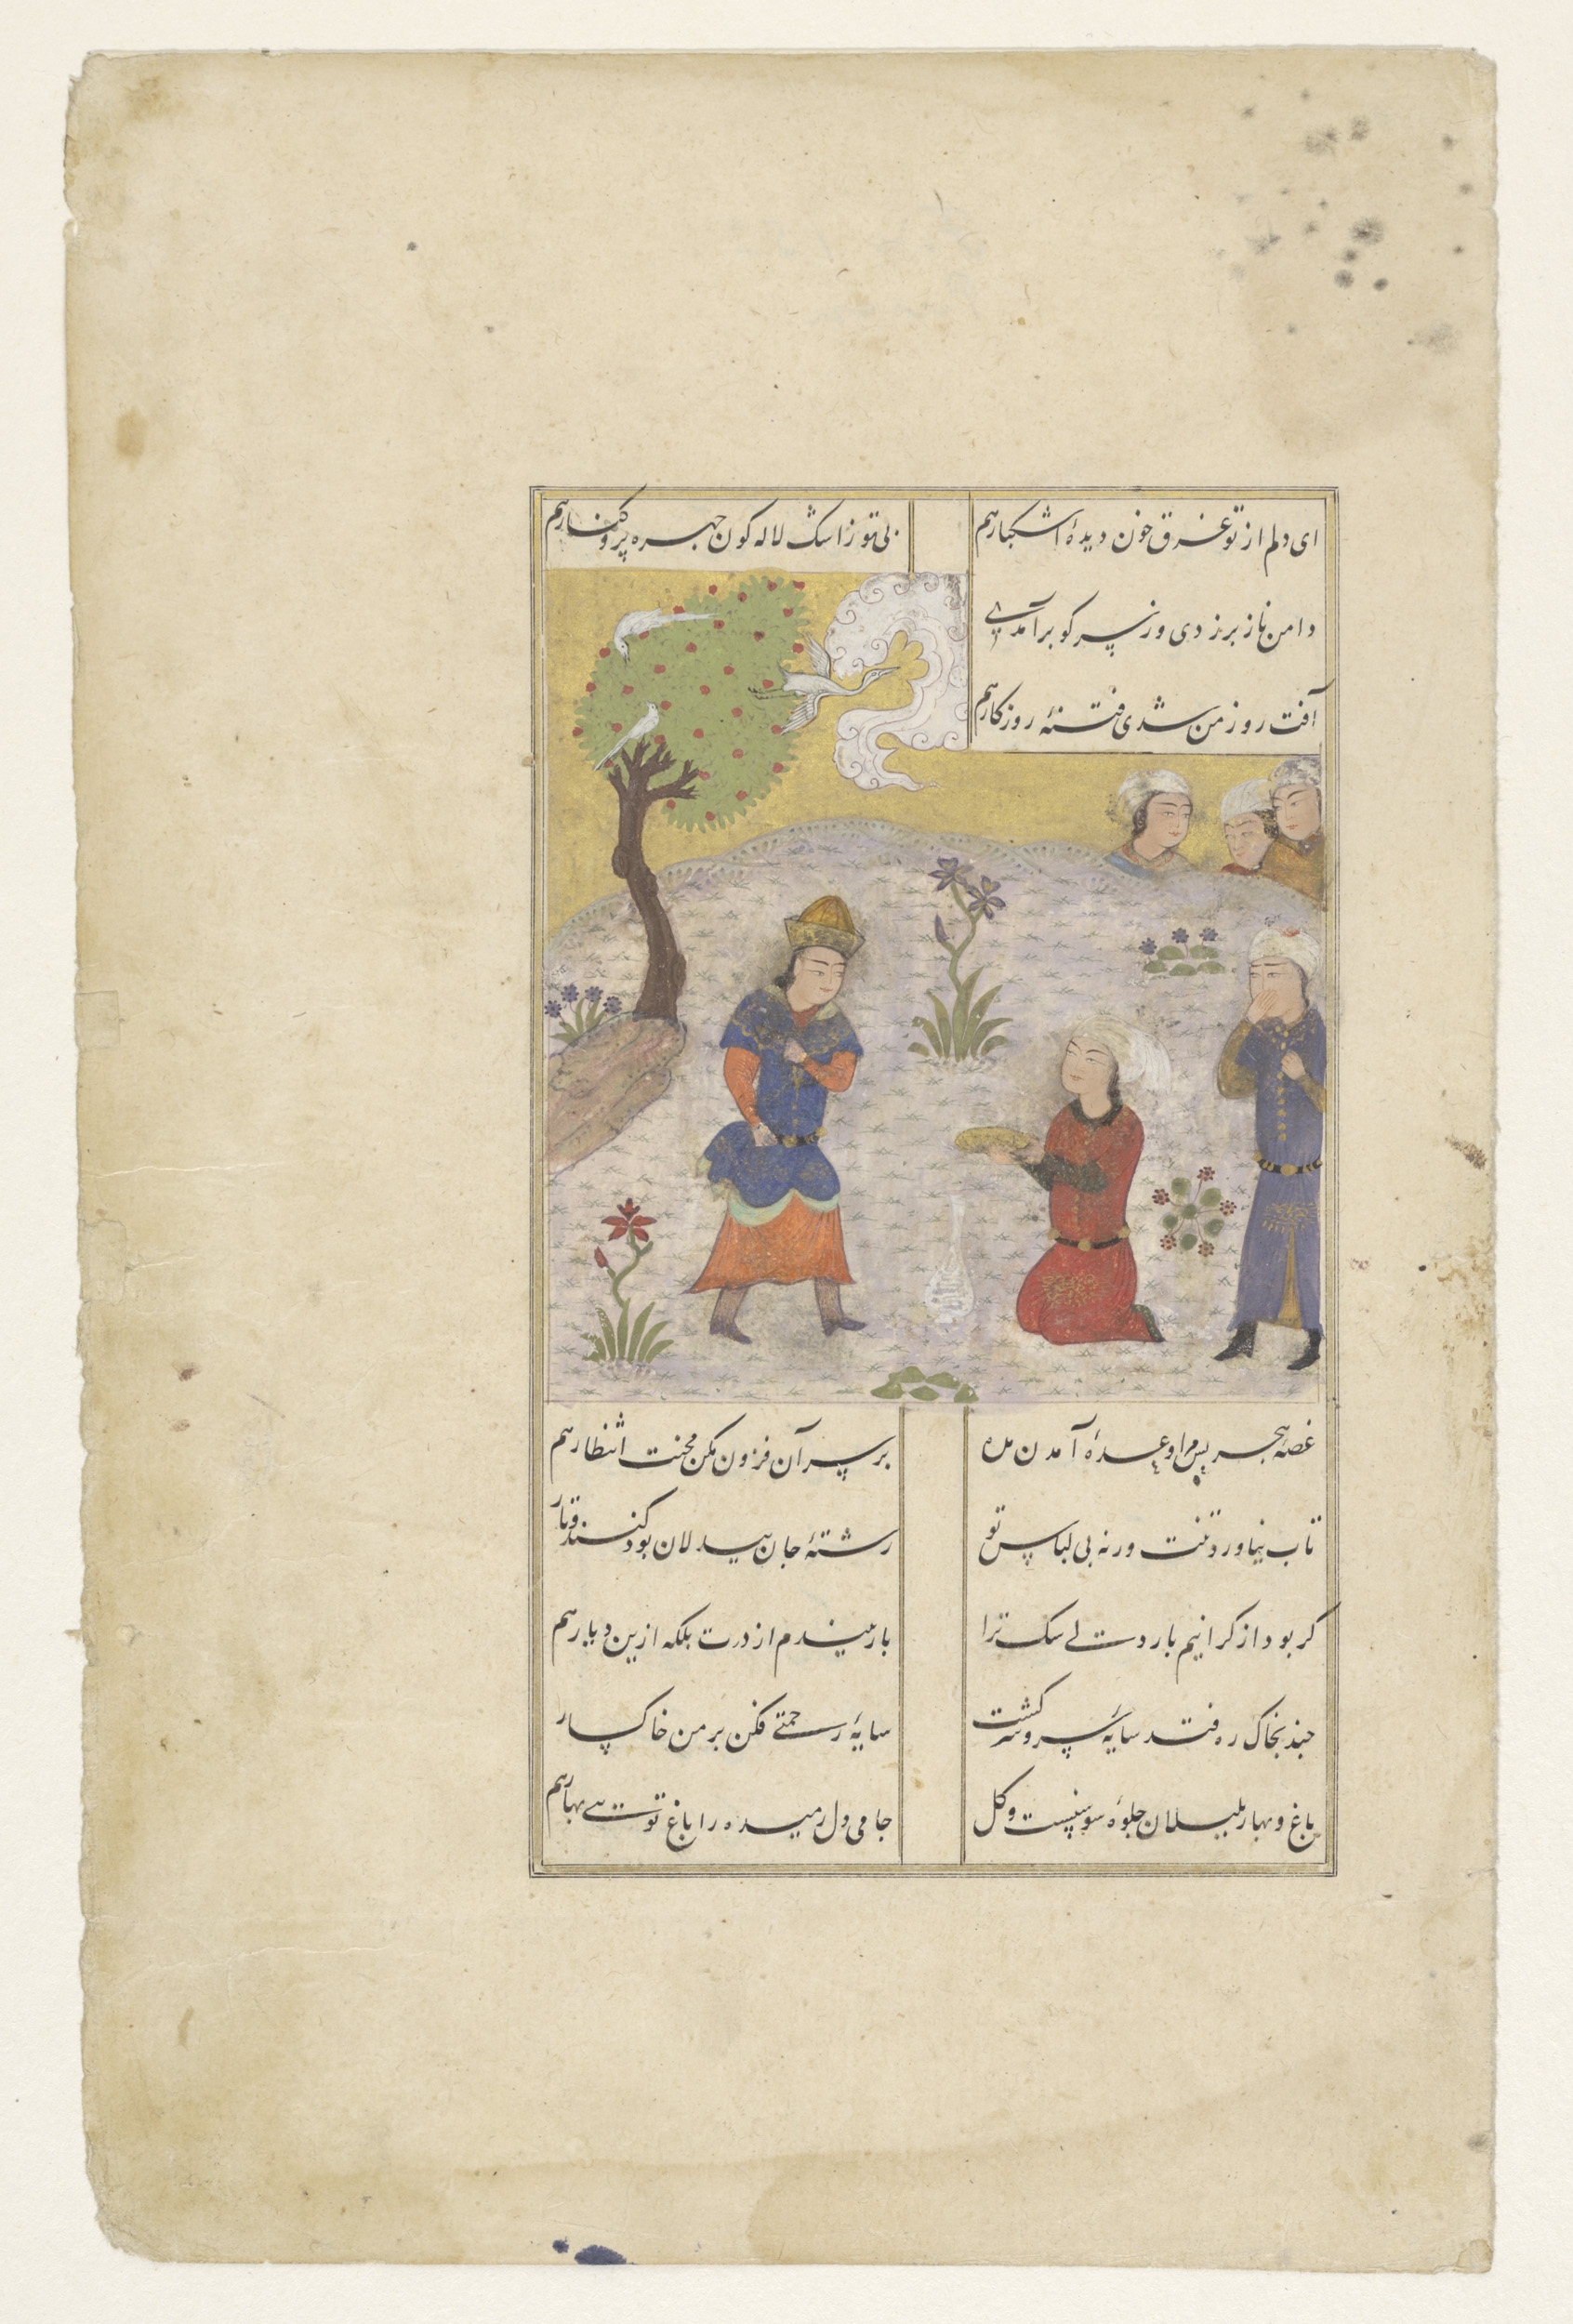 ای دلم از تو غرق خون دیدهٔ اشکبار هم
بی تو ز اشک لاله کون چهره پر و کنار هم
دامن ناز بر زدی وز سر کو برآمدی
آفت روز من شدی فتنهٔ روزکار هم
غصهٔ هجر بس مرا وعدهٔ آمدن مده
بر سر آن فزون مکن محنت انتظار هم
تاب نیاورد تنت ورنه پی لباس تو
رشتهٔ جان بیدلان بود کنند و تار
کر بود از کرانیم بار دل سک ترا
بار ببندم از درت بلکه ازین دیار هم
چند بخاک ره فتد سایهٔ سرو سرکشت
سایهٔ رحمتی فکن بر من خاکسار
باغ و بهار بلبلان جلوهٔ سوسنست و کل
جامی دل رمیده را باغ تویی بهار هم